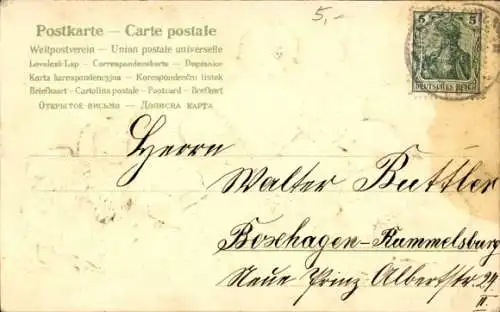 5,-
Postkarte — Carte postale
Weltpostverein — Union postale universelle
Levelező-Lap — Correspondenzkarte — Dopisnice
Karta korespondencyjna — Korespondenční lístek
Briefkaart — Cartolina postale — Postcard — Brefkort
Открытое письмо — Дописна карта
5 5
DEUTSCHES REICH
Herrn
Walter Buttler
Boxhagen-Rummelsburg
Neue Prinz Albertstr. 24
II.